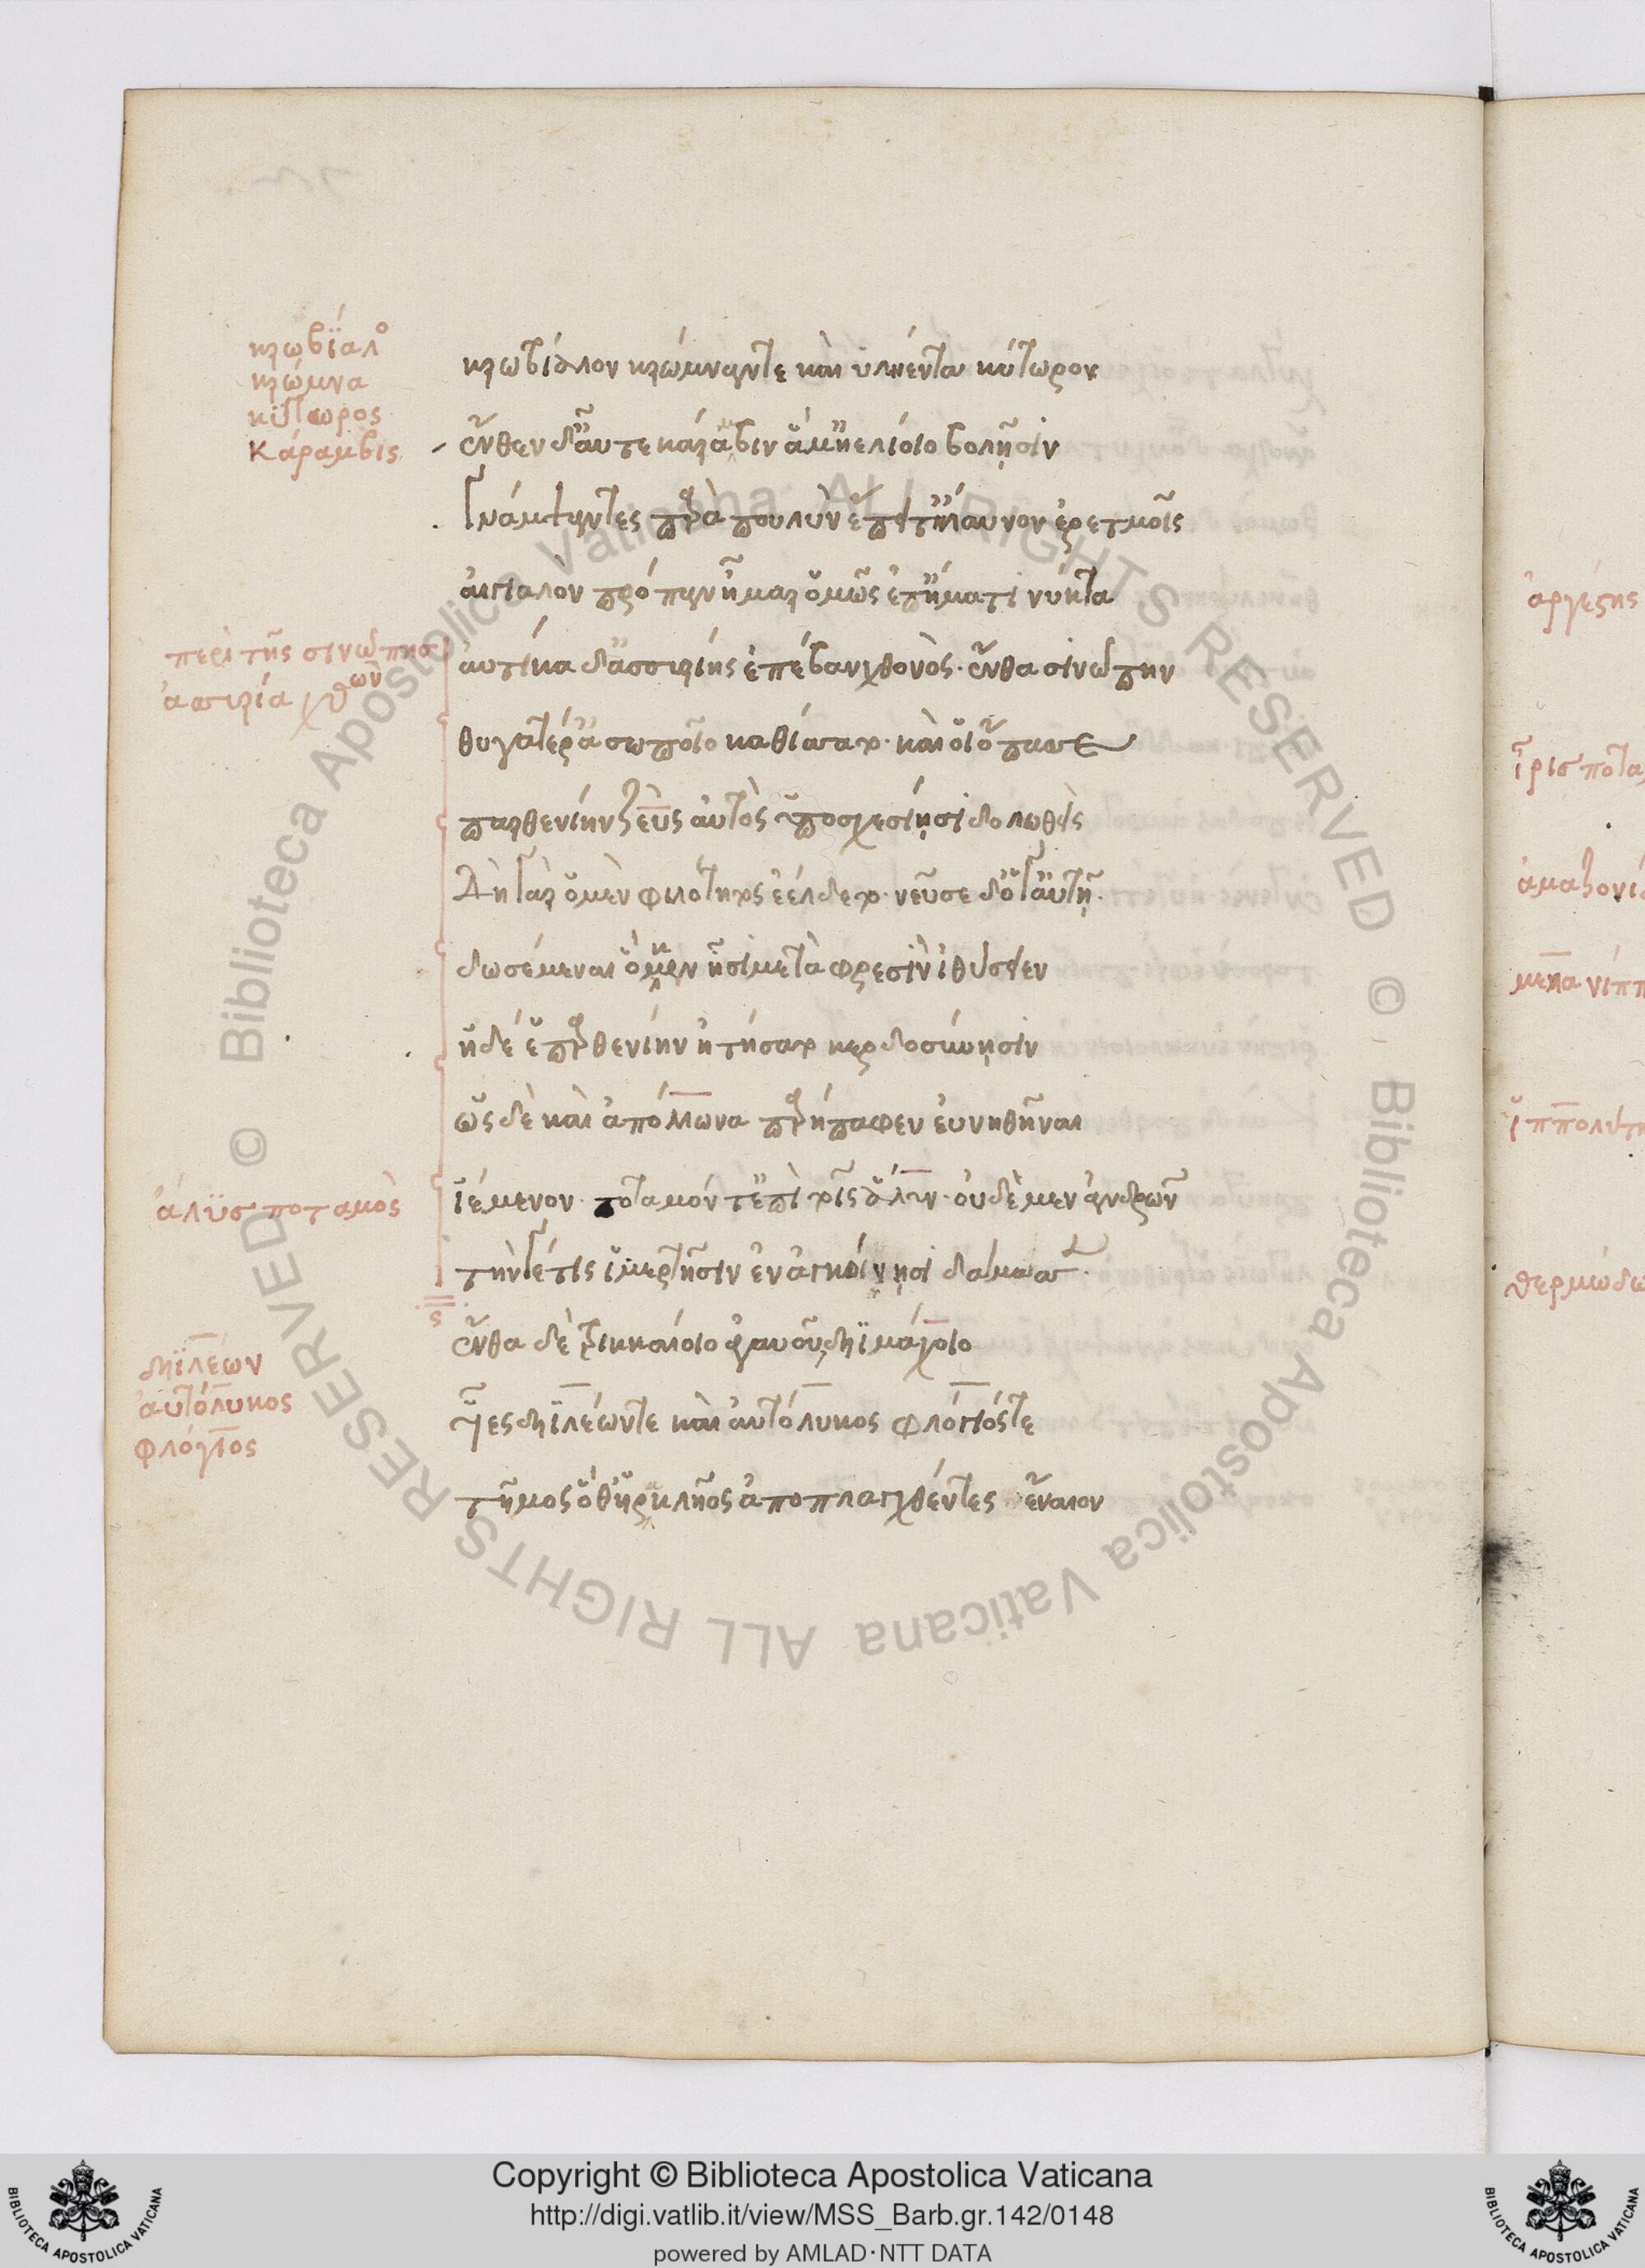 κρωβίαλο
κρώμνα
κύτωρος
κάραμβις
κρωβίαλον κρώμναν τε καὶ ὑλήεντα κύτωρον
ἔνθεν δ' αὖτε κάραμβιν ἅμ' ἠελίοιο βολῇσιν
γνάμψαντες παρὰ πουλὺν ἔπειτ' ἤλαυνον ἐρετμοῖς
αἰγιαλὸν πρόπαν ἦμαρ ὁμῶς ἐπ' ἤματι νύκτα
περὶ τῆς σινώπης
ἀσσυρία χθων
αὐτίκα δ' ἀσσυρίης ἐπέβαν χθονὸς· ἔνθα σινώπην
θυγατέρ' ἀσωποῖο καθίσσατο· καὶ οἱ ὄπασσε
παρθενίην ζεὺς αὐτὸς ὑποσχεσίῃσι δολωθείς
δὴ γὰρ ὁ μὲν φιλότητος ἐέλδετο· νεῦσε δ' ὅγ' αὐτῇ·
δωσέμεναι ὅ κεν ᾗσι μετὰ φρεσὶν ἰθύσειεν
ἡ δέ ἑ παρθενίην ᾐτήσατο κερδοσύνῃσιν
ὣς δὲ καὶ ἀπόλλωνα παρήπαφεν εὐνηθῆναι
ἁλυς ποταμὸς
ἱέμενον· ποταμόν τ' ἐπὶ τοῖς ἅλυν· οὐδὲ μεν ἀνδρῶν
τήν γέ τις ἱμερτῇσιν ἐν ἀγκοίνῃσι δάμασσε·
ἔνθα δὲ τρικκαίοιο ἀγαυοῦ δηϊμάχοιο
δηϊλέων
αὐτόλυκος
φλόγιος
υἷες δηϊλέων τε καὶ αὐτόλυκος φλόγιός τε
τῆμος ὅθ' ἡρακλῆος ἀποπλαγχθέντες ἔναιον
ἀργέςης
ἶρις ποτα
ἀμαζονί
ἱππολύτη
θερμώδω
Copyright © Biblioteca Apostolica Vaticana
http://digi.vatlib.it/view/MSS_Barb.gr.142/0148
powered by AMLAD·NTT DATA
BIBLIOTECA APOSTOLICA VATICANA
BIBLIOTECA APOSTOLICA VATICANA
© Biblioteca Apostolica Vaticana ALL RIGHTS RESERVED © Biblioteca Apostolica Vaticana ALL RIGHTS RESERVED